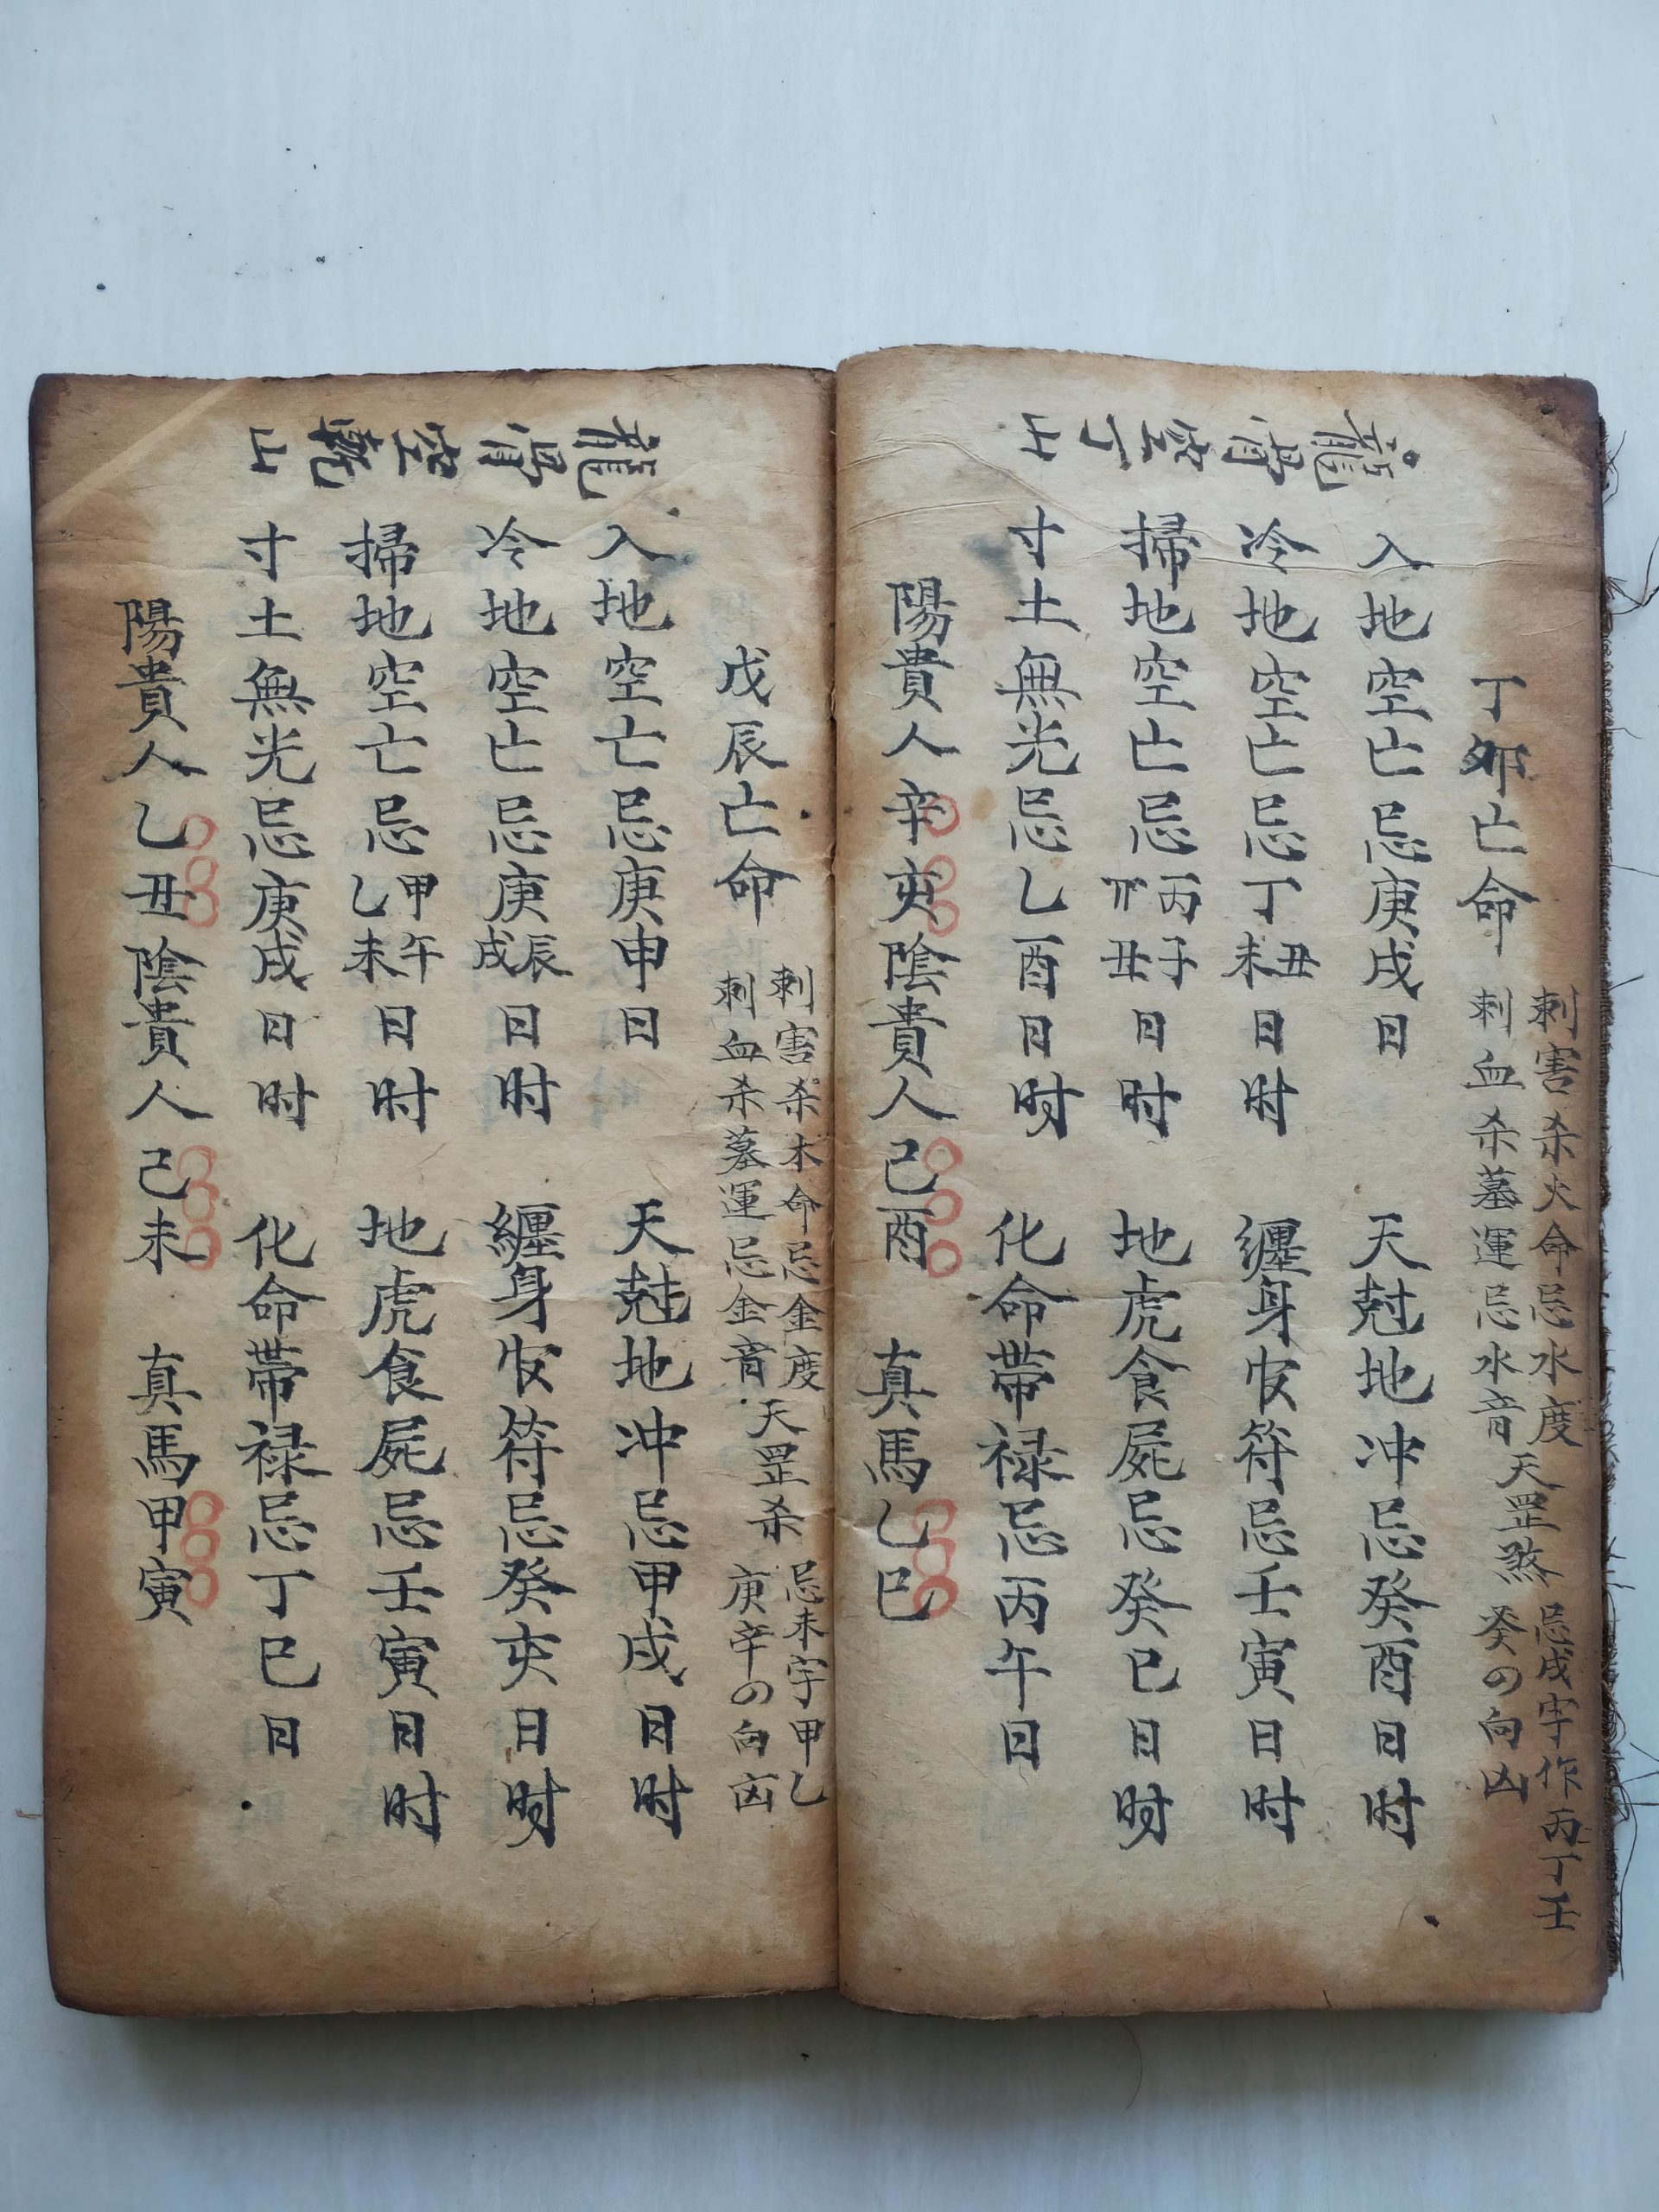 龍骨空丁山
丁卯亡命
刺害杀火命忌水度
刺血杀墓運忌水音
天罡煞
忌戌字作丙丁壬
癸の向凶
入地空亡忌庚戌日 天尅地冲忌癸酉日时
冷地空亡忌丁丑未日时 纏身安符忌壬寅日时
掃地空亡忌丙子丑日时 地虎食屍忌癸巳日时
寸土無光忌乙酉日时 化命帶禄忌丙午日
陽貴人辛亥陰貴人己酉 真馬乙巳
龍骨空乾山
戊辰亡命
刺害杀木命忌金度
刺血杀墓運忌金音
天罡杀
忌未字甲乙
庚辛の向凶
入地空亡忌庚申日 天尅地冲忌甲戌日时
冷地空亡忌庚辰戌日时 纏身安符忌癸亥日时
掃地空亡忌甲午乙未日时 地虎食屍忌壬寅日时
寸土無光忌庚戌日时 化命帶禄忌丁巳日
陽貴人乙丑陰貴人己未 真馬甲寅